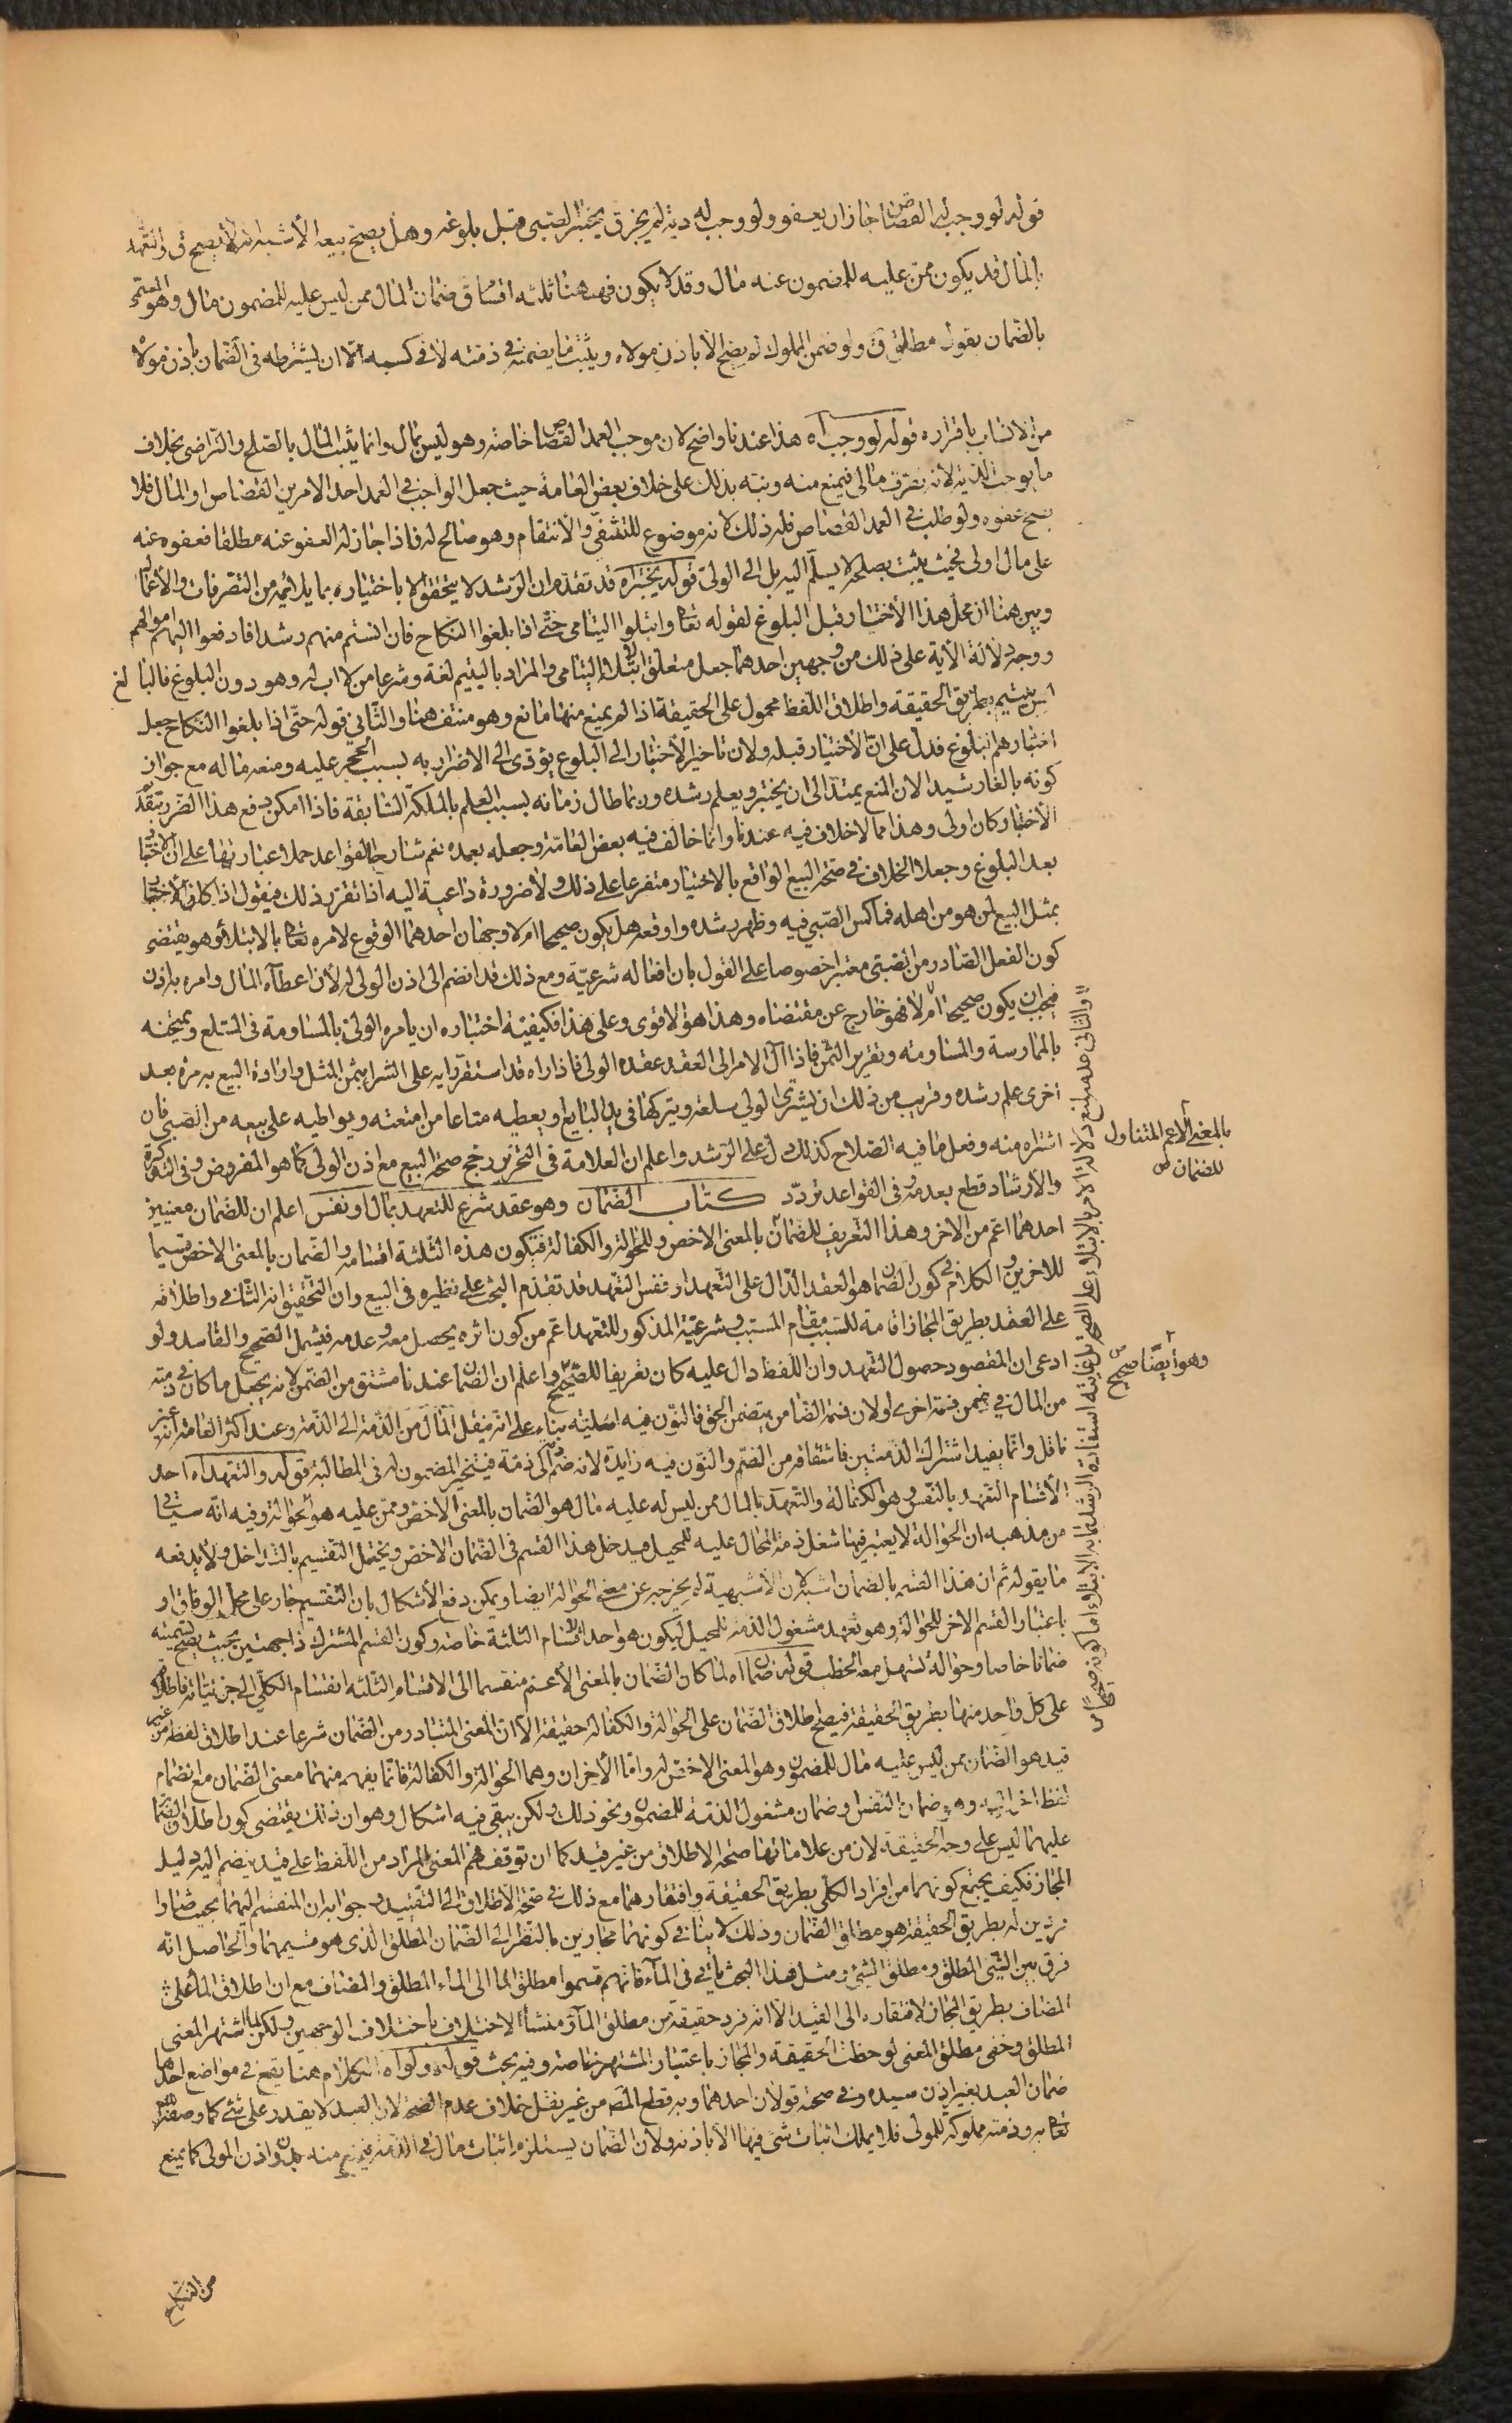 قوله لو وجب له القصاص جاز ان يعفو ولو وجب له دية لم يجز ق يختبر الصبى قبل بلوغه وهل يصح بيعه الأشبه انه لا يصح ق والتعهد
بالمال قد يكون ممن عليه للمضمون عنه مال وقد لا يكون فههنا ثلثه اقسام ق ضمان المال ممن ليس عليه للمضمون مال وهو المسمى
بالضمان بقول مطلق ق ولو ضمن المملوك لم يصح الا باذن مولاه ويثبت ما يضمنه فى ذمته لا فى كسبه الا ان يشترطه فى الضمان باذن مولاه
من الانساب باقراره قوله لو وجب اه هذا عندنا واضح لان موجب العمد القصاص خاصة وهو ليس بمال وانما يثبت المال بالصلح والتراضى بخلاف
ما يوجب الدية لانه تصرف مالى فيمنع منه ونبه بذلك على خلاف بعض العامة حيث جعل الواجب فى العمد احد الامرين القصاص او المال فلا
يصح عفوه ولو طلب فى العمد القصاص فله ذلك لانه موضوع للتشفى والأنتقام وهو صالح له فاذا جاز له العفو عنه مطلقا فعفوه عنه
على مال اولى فحيث يثبت بصلحه لا يسلم اليه بل الى الولى قوله يختبر اه قد تقدم ان الرشد لا يتحقق الا باختياره بما يلائمه من التصرفات والأعمال
وبين هنا ان محل هذا الأختبار قبل البلوغ لقوله تعا وابتلوا اليتامى حتى اذا بلغوا النكاح فان انستم منهم رشدا فادفعوا اليهم اموالهم
ووجه دلالة الأية على ذلك من وجهين احدهما جعل متعلق ابتلاء اليتامى والمراد باليتيم لغة وشرعا من لا اب له وهو دون البلوغ فالبالغ
ليس بيتيم بطريق الحقيقه واطلاق اللفظ محمول على الحقيقة اذا لم يمنع منها مانع وهو منتف هنا والثانى قوله حتى اذا بلغوا النكاح جعل
اختبارهم البلوغ فدل على ان الأختبار قبله ولان تاخير الأختبار الى البلوغ يؤدى الى الاضرار به بسبب الحجر عليه ومنعه ماله مع جواز
كونه بالغا رشيدا لان المنع يمتد الى ان يختبر ويعلم رشده وربما طال زمانه بسبب العلم بالملكة السابقة فاذا امكن دفع هذا الضرر بتقديم
الأختبار كان اولى وهذا مما لا خلاف فيه عندنا وانما خالف فيه بعض العامة وجعله بعده نعم شارح القواعد حمل اعبارتها على ان الاختبار
بعد البلوغ وجعل الخلاف فى صحة البيع الواقع بالاختبار متفرعا على ذلك ولا ضرورة داعية اليه اذا تقرر ذلك فيقول اذا كان الأختبار
بمثل البيع لمن هو من اهله فماكس الصبى فيه وظهر رشده واوقعه هل يكون صحيحا ام لا وجهان احدهما الوقوع لامره تعا بالابتلاء وهو يقتضى
كون الفعل الصادر من الصبى معتبرا خصوصا على القول بان افعاله شرعية ومع ذلك قد انضم الى اذن الولى له لأن اعطاء المال وامره به اذن
فيجب ان يكون صحيحا ام لا فهو خارج عن مقتضاه وهذا هو الاقوى وعلى هذا فكيفية اختباره ان يامره الولى بالمساومة فى السلع ويمتحنه
بالممارسة والمساومه وتقرير الثمن فاذا آل الامر الى العقد عقده الولى فاذا راه قد استقر رايه على الشراء بثمن المثل وارادة البيع به مرة بعد
اخرى علم رشده وقريب من ذلك ان يشترى الولى سلعة ويتركها فى يد البايع ويعطيه متاعا من امتعته ويواطيه على بيعه من الصبى فان
اشتراه منه وفعل ما فيه الصلاح كذلك دل على الرشد واعلم ان العلامة فى التحرير رجح صحة البيع مع اذن الولى كما هو المفروض وفى التذكرة
والأرشاد قطع بعدمه وفى القواعد تردد كتاب الضمان وهو عقد شرع للتعهد بمال او نفس اعلم ان للضمان معنيين
احدهما اعم من الاخر وهذا التعريف للضمان بالمعنى الاخص وللحوالة والكفالة فتكون هذه الثلثة اقسامه والضمان بالمعنى الاخص قسيما
للاخرين والكلام فى كون الضمان هو العقد الدال على التعهد او نفس التعهد قد تقدم البحث على نظيره فى البيع وان التحقيق انه الثانى واطلاقه
على العقد بطريق المجاز اقامة للسبب مقام المسبب وشرعية المذكور للتعهد اعم من كون اثره يحصل معه وعدمه فيشمل الصحيح والفاسد ولو
ادعى ان المقصود حصول التعهد وان اللفظ دال عليه كان تعريفا للصحيح واعلم ان الضمان عندنا مشتق من الضمن لانه يجعل ما كان فى ذمته
من المال فى ضمن ذمة اخرى او لان ذمة الضامن يتضمن الحق فالنون فيه اصلية بناء على انه ينقل المال من الذمة الى الذمة وعند اكثر العامة انه غير
ناقل وانما يفيد اشتراك الذمتين فاشتقاقه من الضم والنون فيه زايدة لانه ضم ذمة الى ذمة فيتخير المضمون له فى المطالبة قوله والتعهد اه احد
الأقسام التعهد بالنفس وهو الكفالة والتعهد بالمال ممن ليس له عليه مال هو الضمان بالمعنى الاخص وممن عليه هو الحوالة وفيه انه سياتى
من مذهبه ان الحوالة لا يعتبر فيها شغل ذمة المحال عليه للمحيل فيدخل هذا القسم فى الضمان الاخص ويحتمل التقسيم بالتداخل ولا يدفعه
ما يقوله ثم ان هذا القسم بالضمان اشبه لان الأشبهية لم يخرجه عن معنى الحوالة ايضا ويمكن دفع الأشكال بان التقسيم جار على محل الوفاق او
باعتبار القسم الاخر للحوالة وهو تعهد مشغول الذمة للمحيل ليكون هو احد اقسام الثلثة خاصة وكون القسم المشترك ذا جهتين بحيث يصح تسميته
ضمانا خاصا وحوالة يسهل معه الخطب قوله ضمان اه لما كان الضمان بالمعنى الأعم منقسما الى الاقسام الثلثه انقسام الكلى الى جزئياته فاطلاقه
على كل واحد منها بطريق الحقيقة فيصح اطلاق الضمان على الحوالة والكفالة حقيقة الا ان المعنى المتبادر من الضمان شرعا عند اطلاق لفظه من غير
قيد هو الضمان ممن ليس عليه مال للمضمون وهو المعنى الاخص له واما الأخران وهما الحوالة والكفالة فانما يفهم منهما معنى الضمان مع انضمام
لفظ اخر اليه وهو ضمان النفس وضمان مشغول الذمة للمضمون ونحو ذلك ولكن يبقى فيه اشكال وهو ان ذلك يقتضى كون اطلاق الضمان
عليهما ليس على وجه الحقيقة لان من علاماتها صحة الاطلاق من غير قيد كما ان توقف فهم المعنى المراد من اللفظ على قيد ينضم اليه دليل
المجاز فكيف يجتمع كونهما من افراد الكلى بطريق الحقيقة وافتقارهما مع ذلك فى صحة الأطلاق الى التقييد وجوابه ان المنقسم اليهما بحيث صارا
فردين له بطريق الحقيقة هو مطلق الضمان وذلك لا ينافى كونهما مجازين بالنظر الى الضمان المطلق الذى هو قسيمهما والحاصل انه
فرق بين الشئ المطلق ومطلق الشئ ومثل هذا البحث ياتى فى الماء فانهم قسموا مطلق الماء الى الماء المطلق والمضاف مع ان اطلاق الماء على
المضاف بطريق المجاز لافتقاره الى القيد الا انه فرد حقيقة من مطلق الماء ومنشأ الاختلاف باختلاف الوجهين ولكن لما اشتهر المعنى
المطلق وخفى مطلق المعنى لوحظت الحقيقة والمجاز باعتبار المشتهر خاصة وفيه بحث قوله ولو اه الكلام هنا يقع فى مواضع احدها
ضمان العبد بغير اذن سيده وفى صحته قولان احدهما وبه قطع المص من غير نقل خلاف عدم الصحة لان العبد لا يقدر على شئ كما وصفه الله
تعا به وذمته مملوكة للمولى فلا يملك اثبات شئ فيها الا باذنه ولان الضمان يستلزم اثبات مال فى الذمة فيمنع منه بدون اذن المولى كما يمنع
من النكاح
بالمعنى الاعم المتناول
للضمان ص
وهو ايضا صحيح